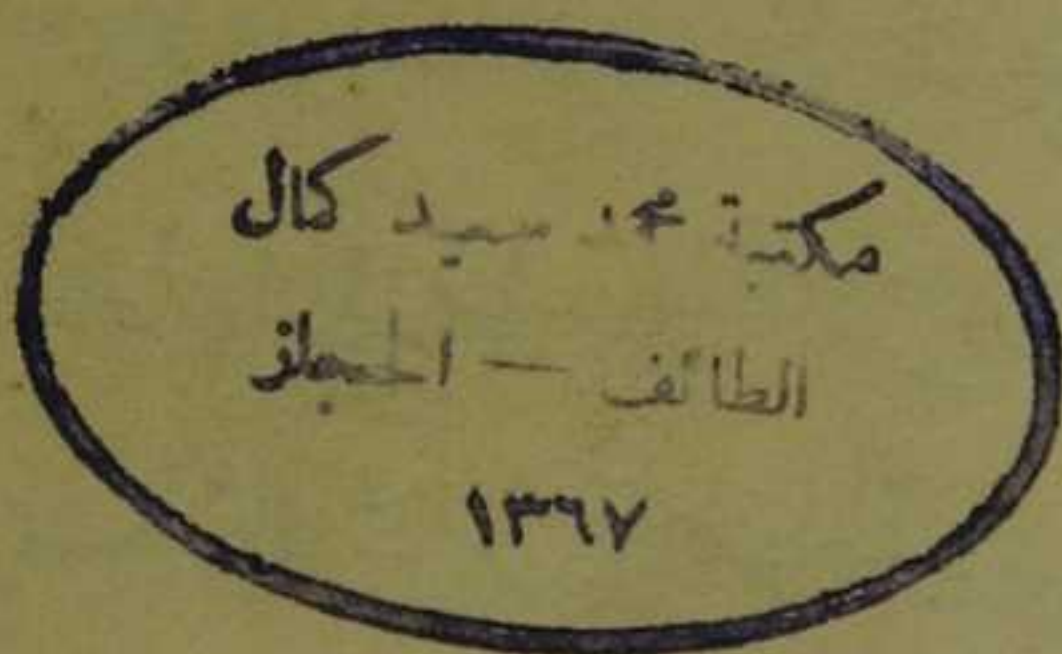 مكتبة محمد سعيد كمال
الطائف — الحجاز
١٣٩٧